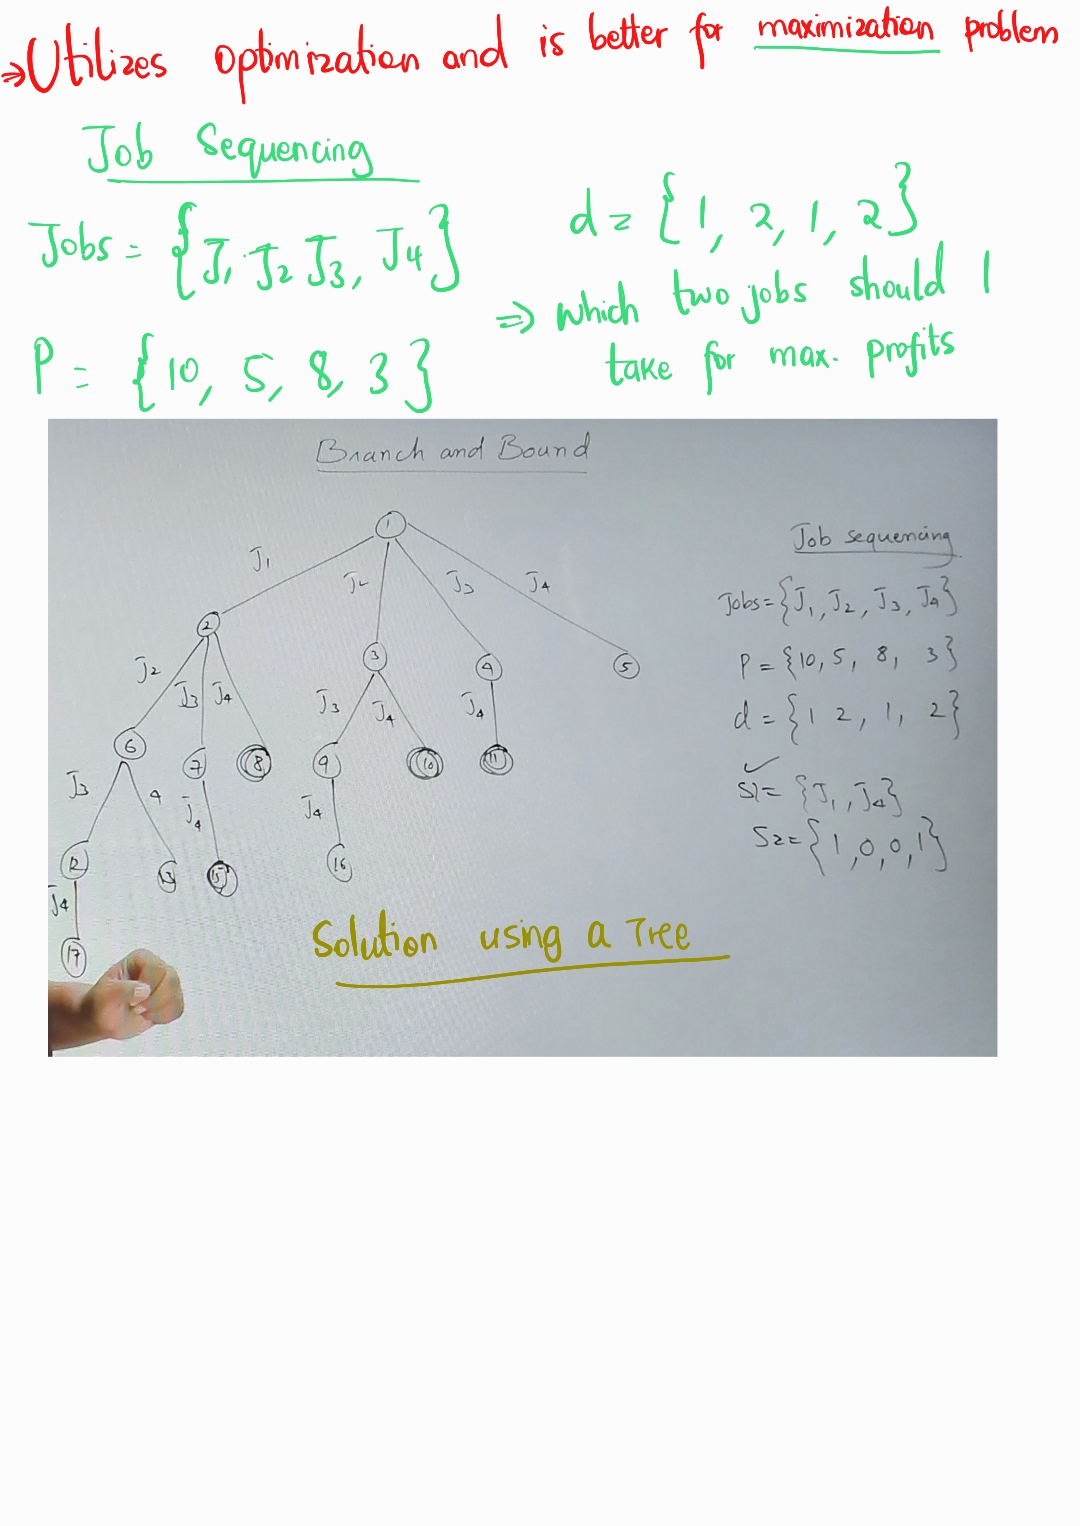 ⇒ Utilizes optimization and is better for maximization problem
Job Sequencing
Jobs = {J1, J2 J3, J4}
d = {1, 2, 1, 2}
P = {10, 5, 8, 3}
⇒ which two jobs should I
take for max. profits
Branch and Bound
1
J1
J2
J3
J4
2
3
4
5
J2
J3
J4
J3
J4
J4
6
7
8
9
10
11
J3
4
J4
J4
12
13
15
16
J4
17
Job sequencing
Jobs = {J1, J2, J3, J4}
P = {10, 5, 8, 3}
d = {1 2, 1, 2}
S1 = {J1, J4}
S2 = {1, 0, 0, 1}
Solution using a Tree